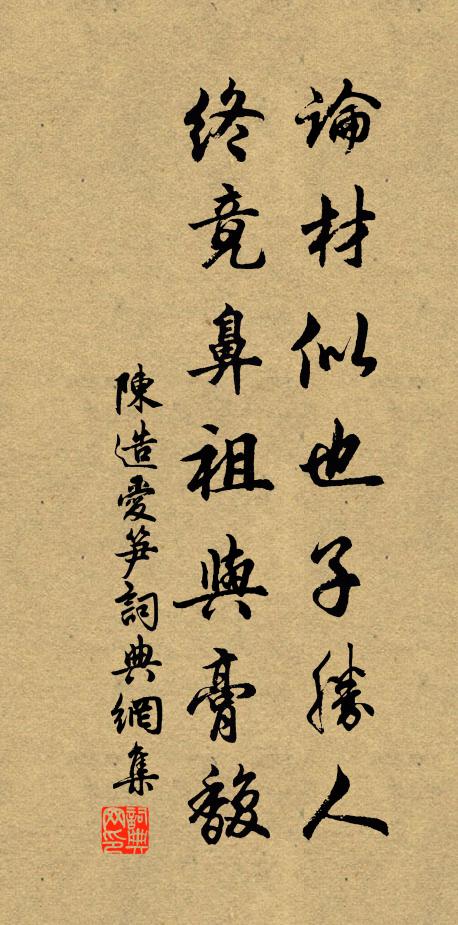 論材似也子勝人
終竟鼻祖與膏馥
陳造愛笋詞典網集
詞典网印